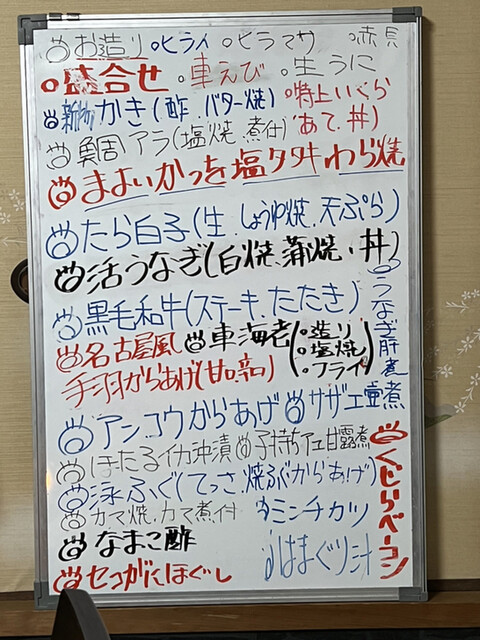 お造り ◦ヒライ ◦ヒラマサ ◦赤貝
◦盛合せ ◦車えび ◦生うに
新物 かき(酢、バター焼) ◦特上いくら
鯛アラ(塩焼、煮付) (あて、丼)
まよいがつを塩タタキわら焼
たら白子(生、しょうゆ焼、天ぷら)
活うなぎ(白焼、蒲焼、丼)
うなぎ肝煮
黒毛和牛(ステーキ、たたき)
名古屋風
手羽からあげ(甘o辛)
車海老(◦造り
◦塩焼
◦フライ)
アンコウからあげ サザエ壷煮
ほたるイカ沖漬 子持アユ甘露煮
泳ふぐ(てっさ、焼ふぐからあげ)
カマ焼、カマ煮付 ミンチカツ
なまこ酢
はまぐり汁
セコがにほぐし
くじらベーコン